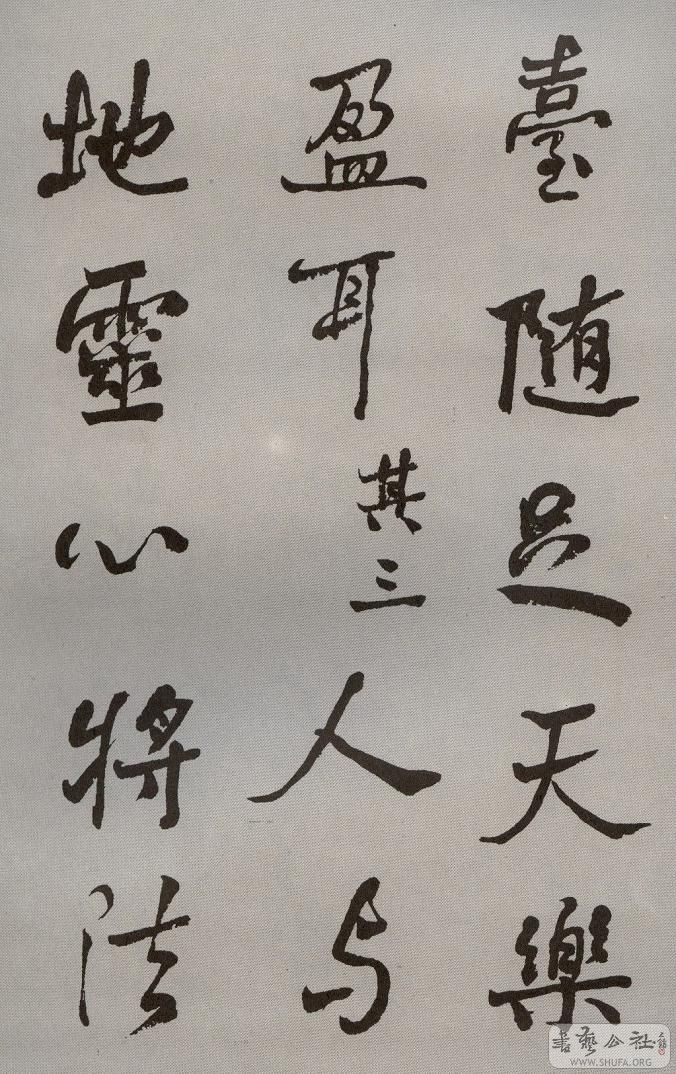 臺随足天樂
盈耳其三人与
地靈心將法
書藝公社
WWW.SHUFA.ORG